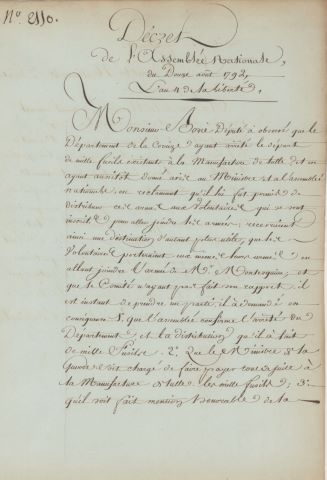 N.º 2110.
Décret
de l'Assemblée Nationale,
du Douze août 1792,
L'an 4 de la liberté,
Monsieur Borie Député a observé que le
Département de la Corrèze ayant arrêté le départ
de mille fusils existant à la Manufacture de tulle et en
ayant aussitôt donné avis au Ministre et a l'assemblée
nationale en reclamant qu'il lui fut permis de
distribuer ces armes aux Volontaires qui se sont
inscrits pour aller joindre les armées, recevroient
ainsi une destination d'autant plus utile, que les
Volontaires porteraient eux mêmes leurs armes en
allant joindre l'armée de M. Montesquiou, et
que le Comité n'ayant pas fait son rapport, il
est instant de prendre un parti, il a demandé en
conséquence 1.º que l'assemblée confirme l'arrêté du
Département et la distribution qu'il a fait
de mille Fusils. 2.º Que le Ministre de la
Guerre soit chargé de faire payer tout de suite à
la Manufacture de tulle les mille fusils; 3.º
qu'il soit fait mention honorable de la